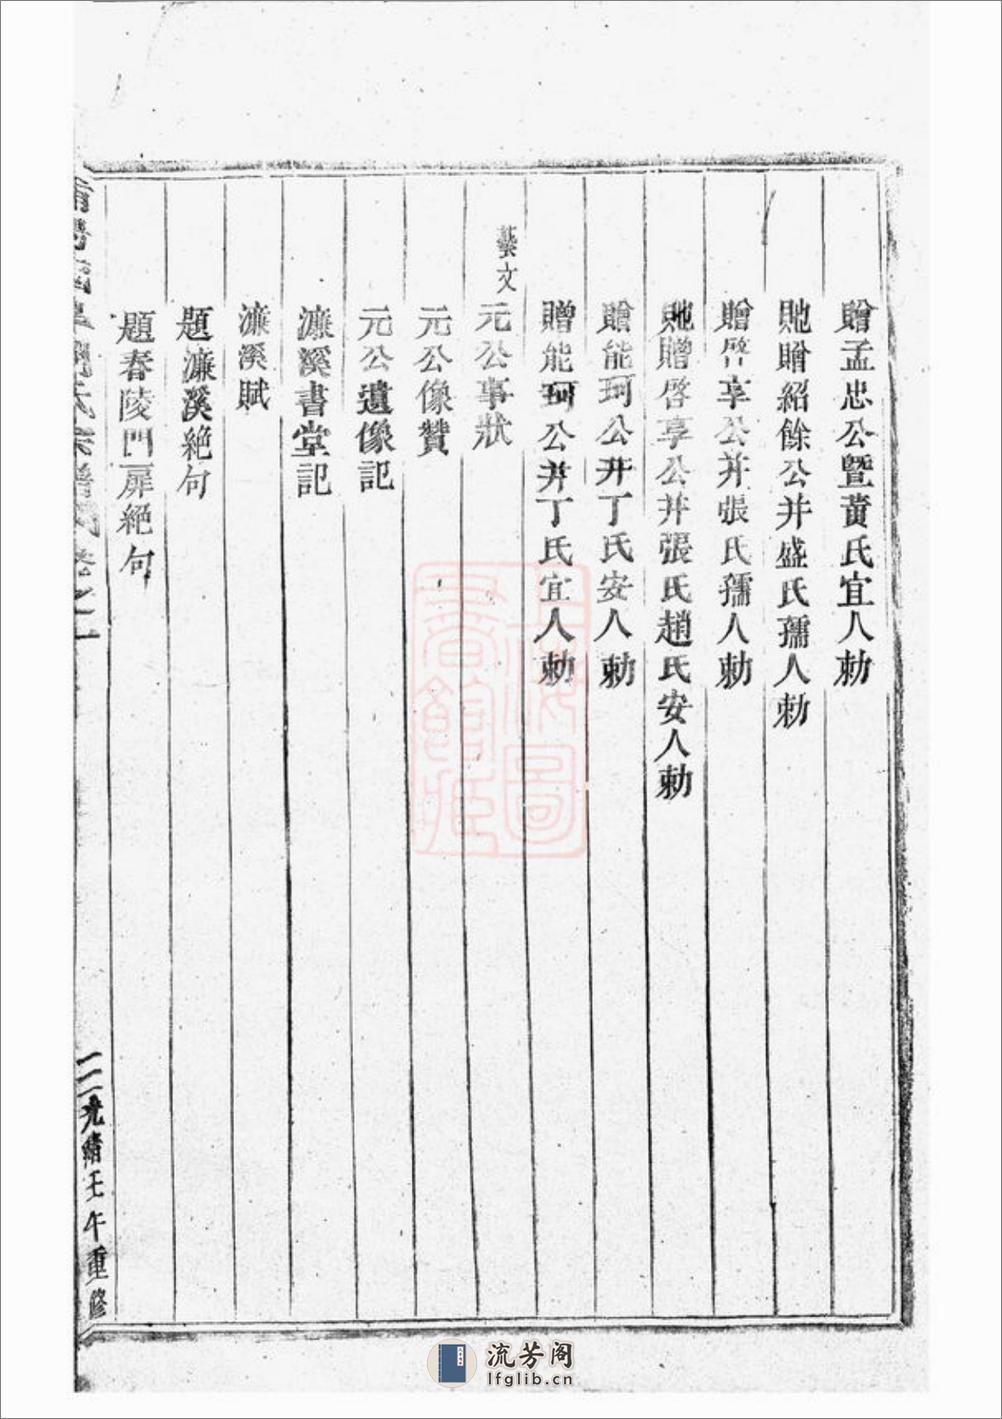 贈孟忠公暨黃氏宜人勅
貤贈紹餘公并盛氏孺人勅
贈啓享公并張氏孺人勅
貤贈啓享公并張氏趙氏安人勅
贈能珂公并丁氏安人勅
贈能珂公并丁氏宜人勅
藝文
元公事狀
元公像贊
元公遺像記
濂溪書堂記
濂溪賦
題濂溪絕句
題春陵門扉絕句
氏宗譜
卷之一
二
光緒壬午重修
上海圖書館藏
流芳阁
lfglib.cn